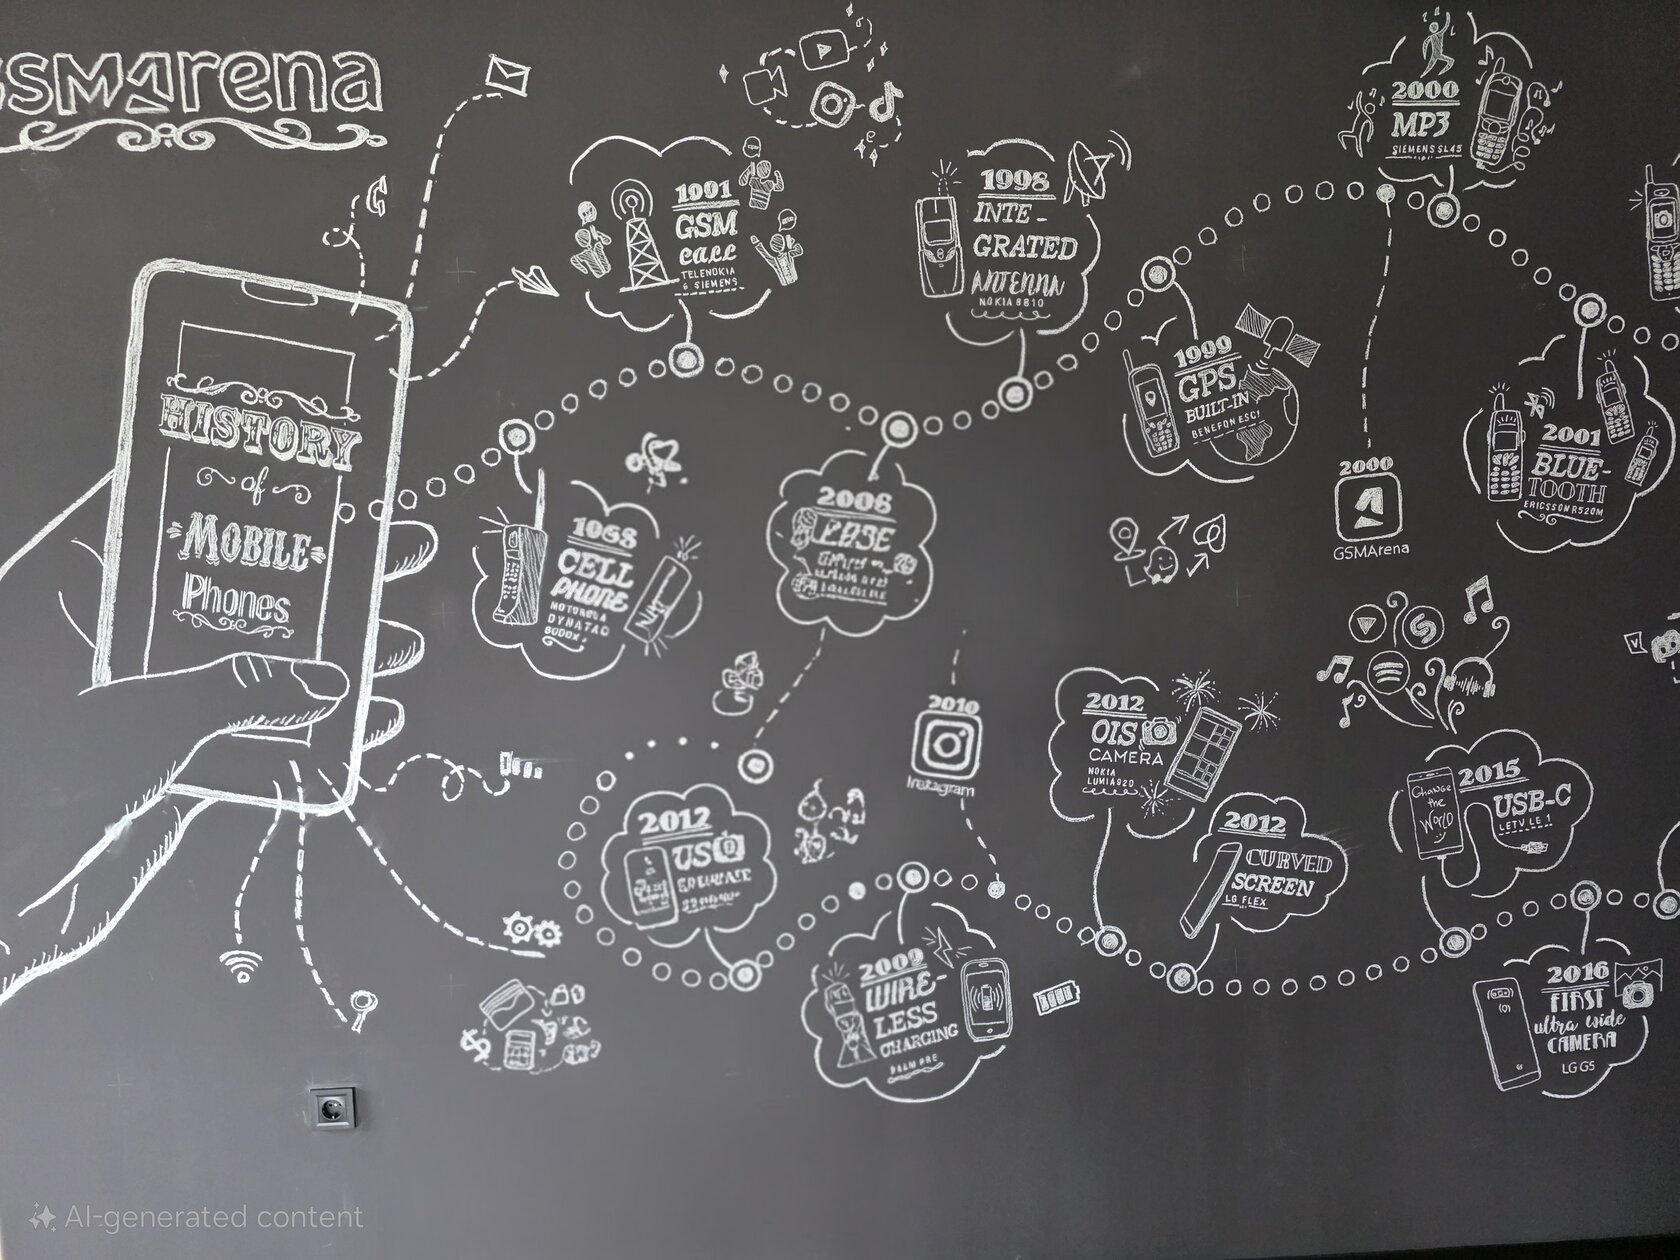 GSMArena
HISTORY
of
MOBILE
Phones
1991
GSM
CALL
TELENOKIA
& SIEMENS
1998
INTE-
GRATED
ANTENNA
NOKIA 8810
2000
MP3
SIEMENS SL45
1999
GPS
BUILT-IN
BENEFON ESC!
2000
GSMArena
2001
BLUE-
TOOTH
ERICSSON R520M
CELL
PHONE
DYNATAC
8000X
2012
2010
Instagram
2012
OIS
CAMERA
NOKIA
LUMIA 920
2012
CURVED
SCREEN
LG FLEX
Change
the
World
2015
USB-C
LETV LE 1
2009
WIRE-
LESS
CHARGING
PALM PRE
2016
FIRST
ultra wide
CAMERA
LG G5
AI-generated content